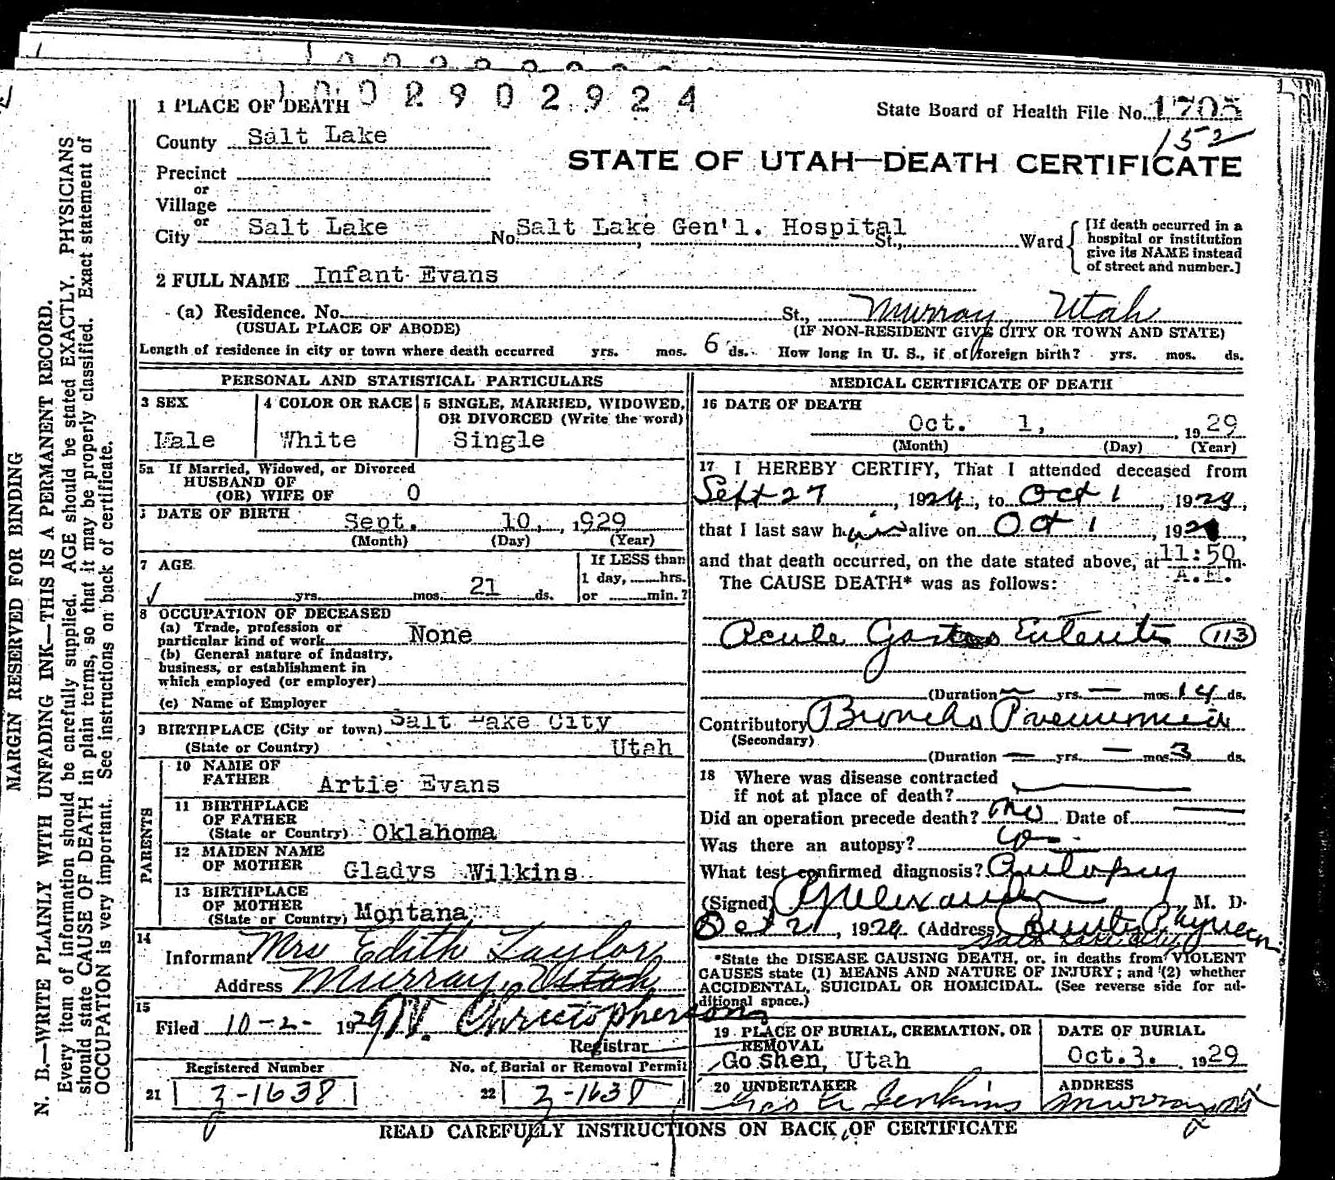 1 PLACE OF DEATH
0 0 2 9 0 2 9 2 4
State Board of Health File No. 1705
152
County Salt Lake
STATE OF UTAH—DEATH CERTIFICATE
Precinct
or
Village
or
City Salt Lake No. Salt Lake Gen'l. Hospital St., Ward
[If death occurred in a
hospital or institution
give its NAME instead
of street and number.]
2 FULL NAME Infant Evans
(a) Residence. No. St., Murray, Utah
(USUAL PLACE OF ABODE) (IF NON-RESIDENT GIVE CITY OR TOWN AND STATE)
Length of residence in city or town where death occurred yrs. mos. 6 ds. How long in U. S., if of foreign birth? yrs. mos. ds.
PERSONAL AND STATISTICAL PARTICULARS
3 SEX
Male
4 COLOR OR RACE
White
5 SINGLE, MARRIED, WIDOWED,
OR DIVORCED (Write the word)
Single
5a If Married, Widowed, or Divorced
HUSBAND OF
(OR) WIFE OF 0
DATE OF BIRTH Sept. 10, 1929
(Month) (Day) (Year)
7 AGE
yrs. mos. 21 ds.
If LESS than
1 day, hrs.
or min.?
8 OCCUPATION OF DECEASED
(a) Trade, profession or
particular kind of work None
(b) General nature of industry,
business, or establishment in
which employed (or employer)
(c) Name of Employer
9 BIRTHPLACE (City or town) Salt Lake City
(State or Country) Utah
PARENTS
10 NAME OF
FATHER Artie Evans
11 BIRTHPLACE
OF FATHER
(State or Country) Oklahoma
12 MAIDEN NAME
OF MOTHER Gladys Wilkins
13 BIRTHPLACE
OF MOTHER
(State or Country) Montana
14
Informant Mrs Edith Taylor
Address Murray, Utah
15
Filed 10-2- 1929 W. Christopherson
Registrar
Registered Number
21 3-1638
No. of Burial or Removal Permit
22 3-1638
MEDICAL CERTIFICATE OF DEATH
16 DATE OF DEATH
Oct. 1, 1929
(Month) (Day) (Year)
17 I HEREBY CERTIFY, That I attended deceased from
Sept 27, 1929, to Oct 1, 1929,
that I last saw him alive on Oct 1, 192
and that death occurred, on the date stated above, at 11:50 m.
A.M.
The CAUSE DEATH* was as follows:
Acute Gastro Enteritis (113)
(Duration — yrs. — mos. 14 ds.
Contributory Broncho Pneumonia
(Secondary)
(Duration — yrs. — mos. 3 ds.
18 Where was disease contracted
if not at place of death?
Did an operation precede death? no Date of
Was there an autopsy? yes
What test confirmed diagnosis? Autopsy
(Signed) M. D.
Oct 2, 1929 (Address)
Salt Lake City
*State the DISEASE CAUSING DEATH, or, in deaths from VIOLENT
CAUSES state (1) MEANS AND NATURE OF INJURY; and (2) whether
ACCIDENTAL, SUICIDAL OR HOMICIDAL. (See reverse side for ad-
ditional space.)
19 PLACE OF BURIAL, CREMATION, OR
REMOVAL
Goshen, Utah
DATE OF BURIAL
Oct. 3. 1929
20 UNDERTAKER
Jenkins
ADDRESS
Murray
READ CAREFULLY INSTRUCTIONS ON BACK OF CERTIFICATE
MARGIN RESERVED FOR BINDING
N. B.—WRITE PLAINLY WITH UNFADING INK—THIS IS A PERMANENT RECORD.
Every item of information should be carefully supplied. AGE should be stated EXACTLY. PHYSICIANS
should state CAUSE OF DEATH in plain terms, so that it may be properly classified. Exact statement of
OCCUPATION is very important. See instructions on back of certificate.